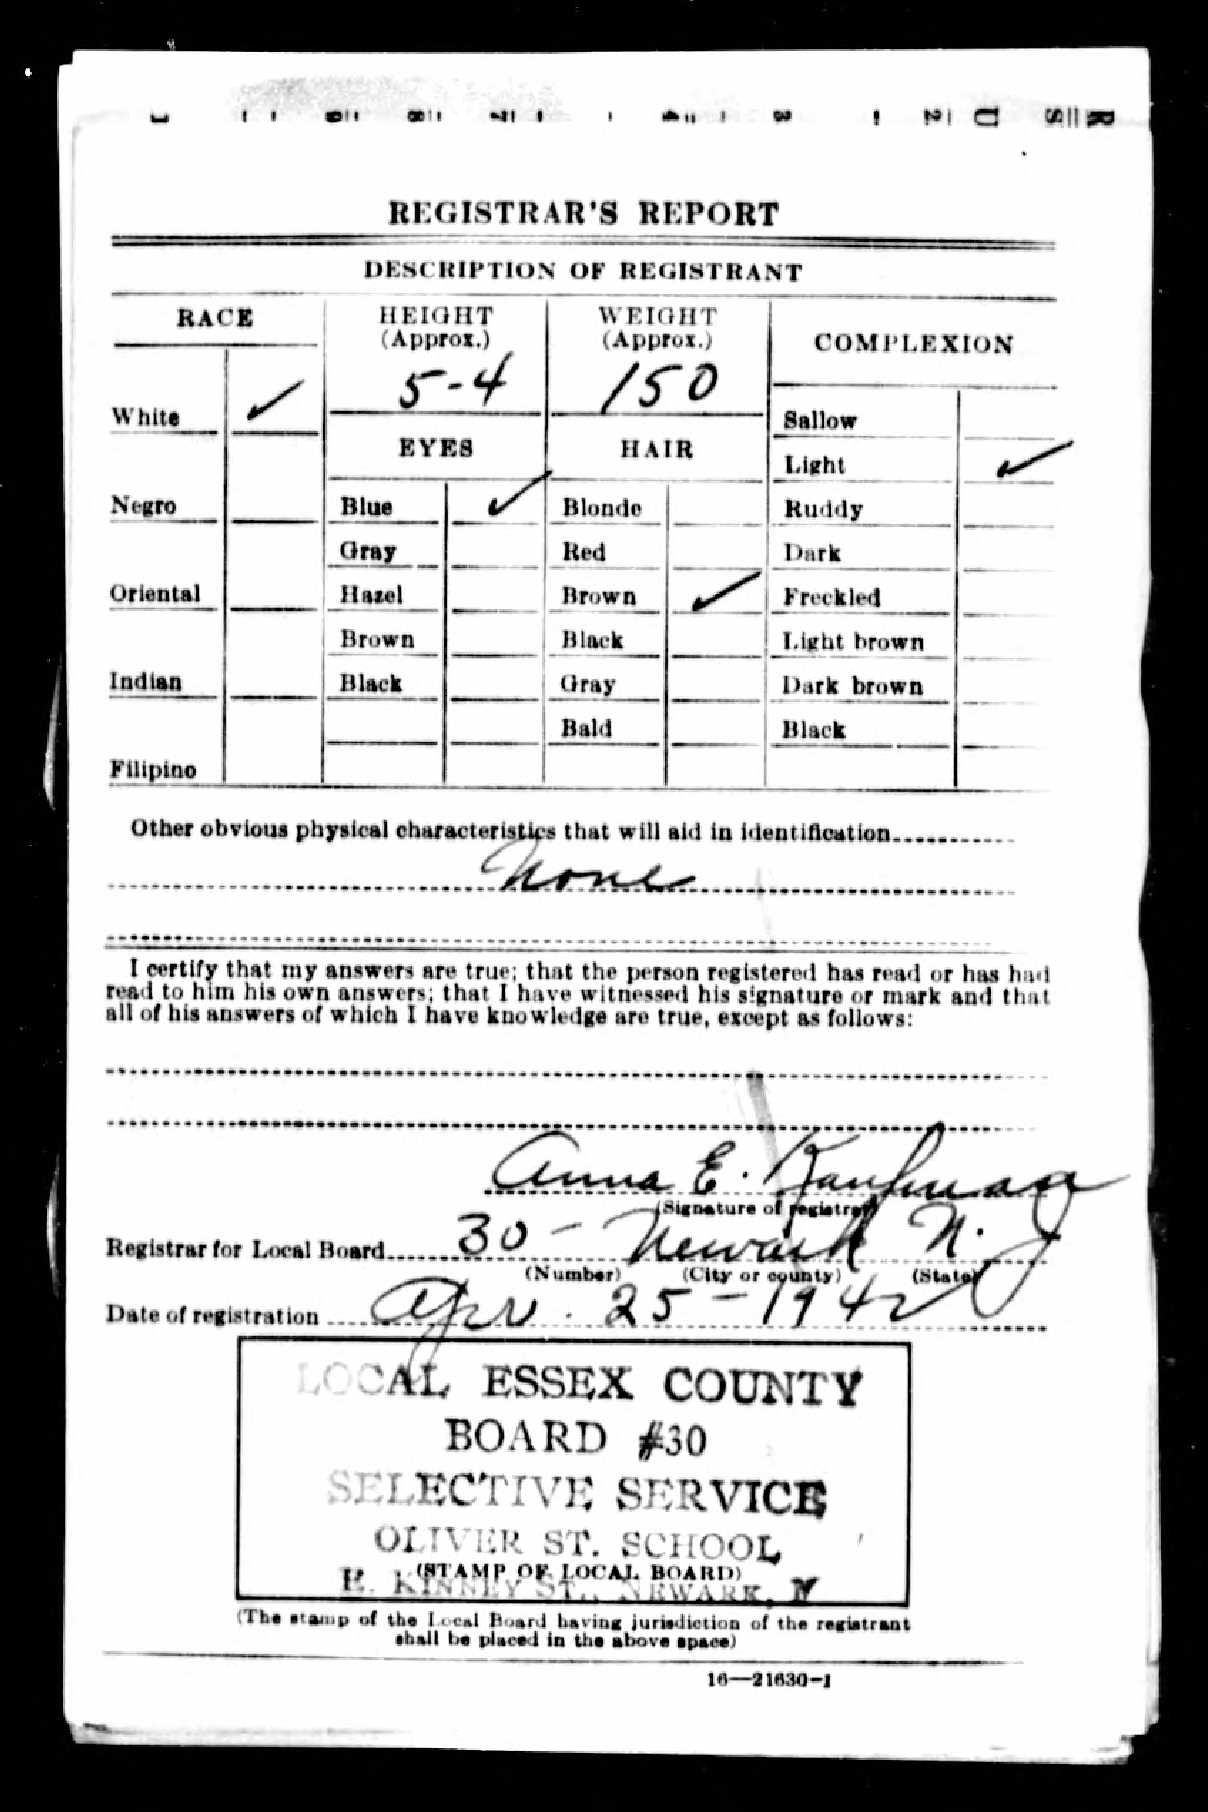 REGISTRAR'S REPORT
DESCRIPTION OF REGISTRANT
RACE
HEIGHT
(Approx.)
5-4
WEIGHT
(Approx.)
150
COMPLEXION
White ✓
Negro
Oriental
Indian
Filipino
EYES
Blue ✓
Gray
Hazel
Brown
Black
HAIR
Blonde
Red
Brown ✓
Black
Gray
Bald
Sallow
Light ✓
Ruddy
Dark
Freckled
Light brown
Dark brown
Black
Other obvious physical characteristics that will aid in identification
None
I certify that my answers are true; that the person registered has read or has had
read to him his own answers; that I have witnessed his signature or mark and that
all of his answers of which I have knowledge are true, except as follows:
Anna E. Kaufman
(Signature of registrar)
Registrar for Local Board 30 - Newark N.J
(Number) (City or county) (State)
Date of registration Apr. 25-1942
LOCAL ESSEX COUNTY
BOARD #30
SELECTIVE SERVICE
OLIVER ST. SCHOOL
(STAMP OF LOCAL BOARD)
E. KINNEY ST., NEWARK, N
(The stamp of the Local Board having jurisdiction of the registrant
shall be placed in the above space)
16—21630-1